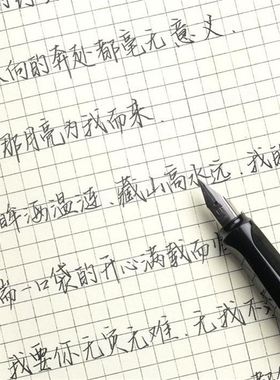 向的奔赴都毫无意义.
那月亮为我而来.
眸洒温涟、藏山高水远、我的
揣一口袋的开心满载而归
我要你无灾无难、无我不